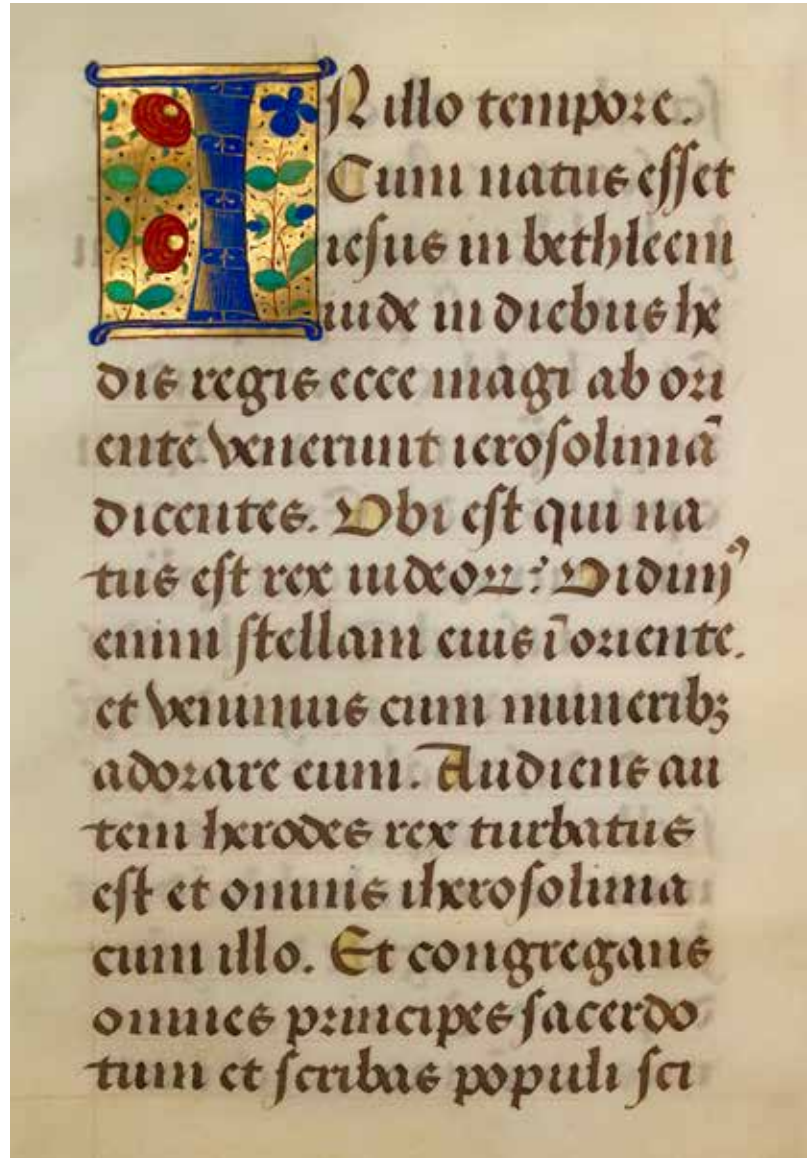 IN illo tempore.
Cum natus esset
iesus in bethleem
iude in diebus he
dis regis ecce magi ab ori
ente venerunt ierosolimā
dicentes. Vbi est qui na
tus est rex iudeoꝝ? Vidimꝰ
enim stellam eius ī oriente.
et venimus cum muneribꝫ
adorare eum. Audiens au
tem herodes rex turbatus
est et omnis iherosolima
cum illo. Et congregans
omnes principes sacerdo
tum et scribas populi sci